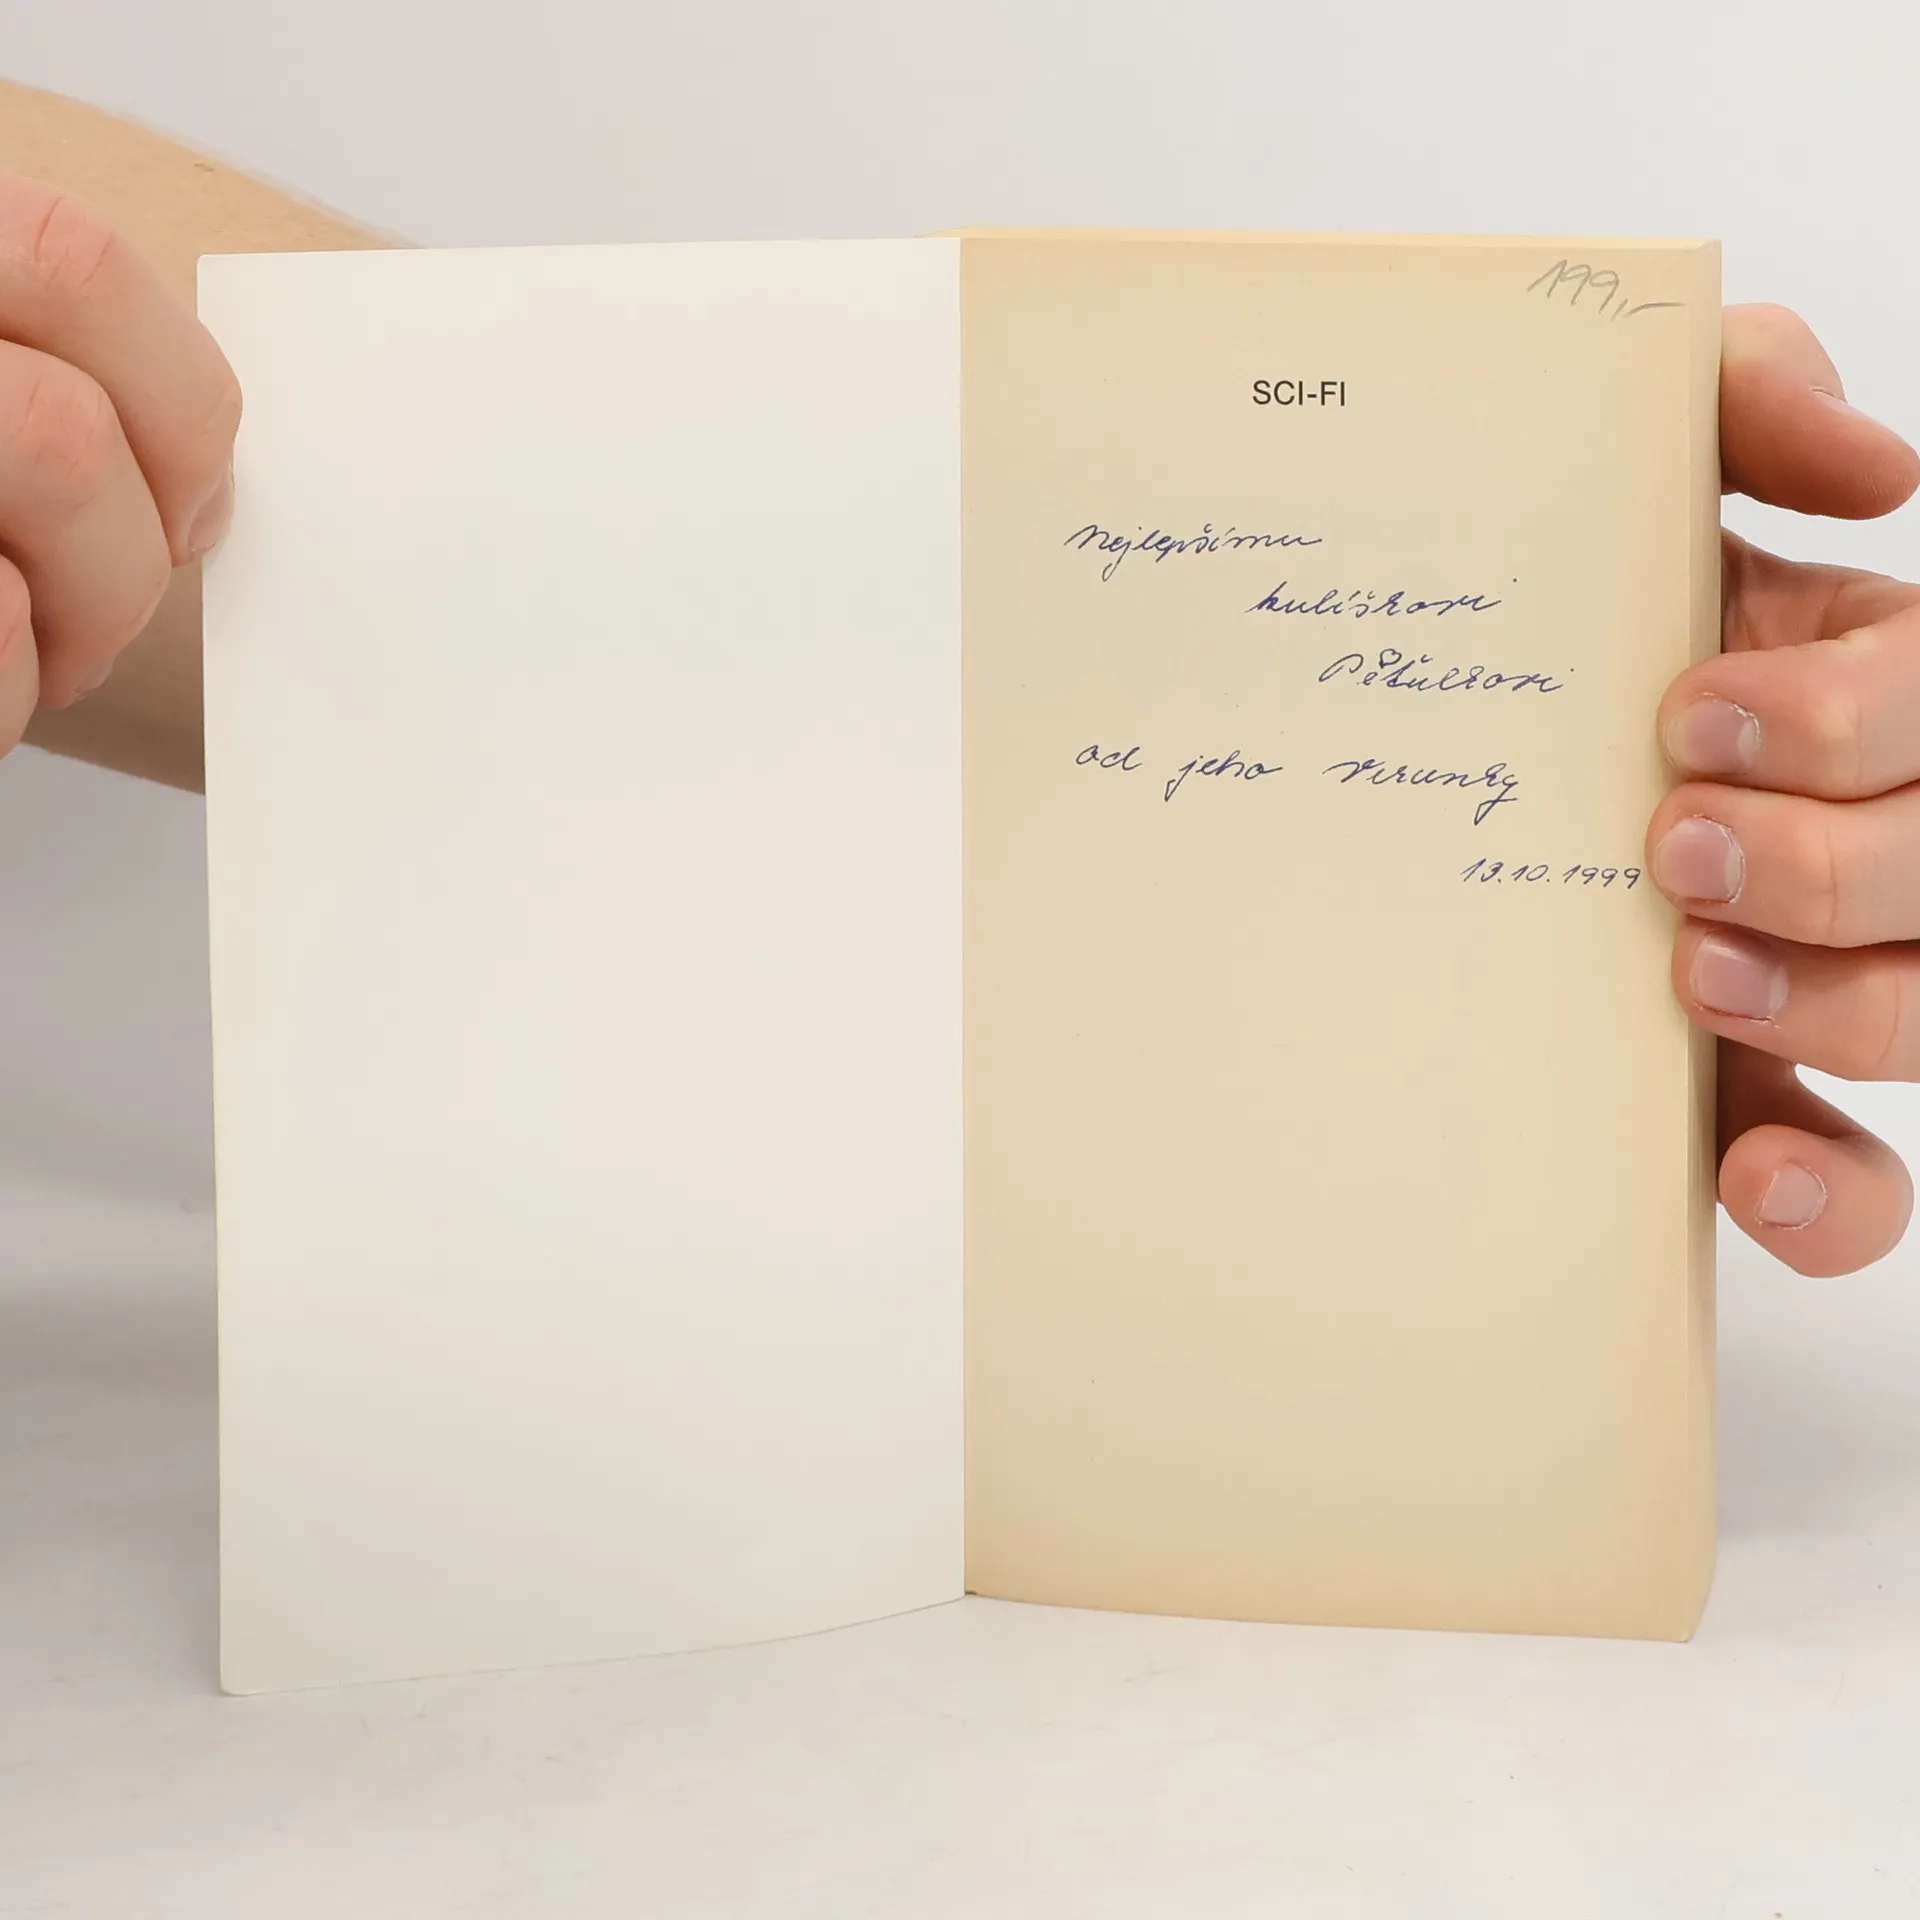 199,-
SCI-FI
Nejlepšímu
kulíškovi
Pěťulkovi
od jeho Verunky
13.10.1999